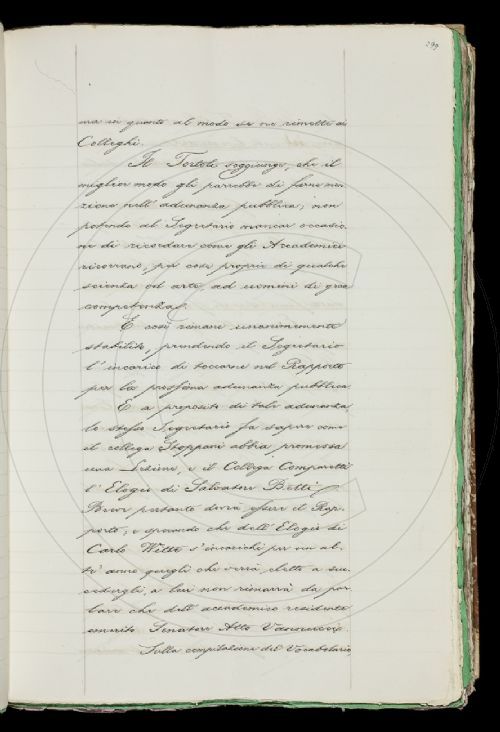 ma in quanto al modo se ne rimette ai
Colleghi.
Il Tortoli soggiunge, che il
miglior modo gli parrebbe di farne men
zione nell' adunanza pubblica, non
potendo al Segretario mancar occasio
ne di ricordare come gli Accademici
ricorrano, per cose proprie di qualche
scienza od arte, ad uomini di gran
competenza.
E così rimane unanimemente
stabilito, prendendo il Segretario
l' incarico di toccarne nel Rapporto
per la prossima adunanza pubblica
E a proposito di tale adunanza
lo stesso Segretario fa sapere come
il collega Stoppani abbia promessa
una Lezione, e il Collega Comparetti
l' Elogio di Salvatore Betti.
Breve pertanto dovrà essere il Rap-
porto, e sperando che dell' Elogio di
Carlo Witte s' incarichi per un al-
tr' anno quegli che verrà eletto a suc-
cedergli, a lui non rimarrà da par
lare che dell' accademico residente
emerito Senatore Atto Vannucci.
Sulla compilazione del Vocabolario
299